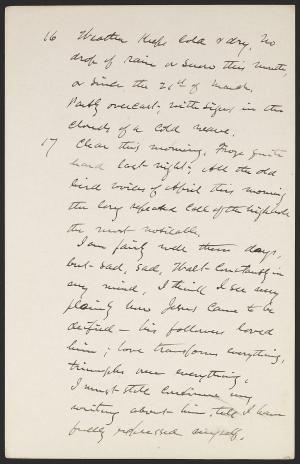 16 Weather keeps cold & dry. No
drop of rain or snow this month,
or since the 26th of March.
Partly overcast, with signs in the
clouds of a cold wave.
17 Clear this morning. Froze quite
hard last night. All the old
bird voices of April this morning
the long repeated call of the highhole
the most noticable.
I am fairly well these days,
but sad, sad. Walt constantly in
my mind. I think I see more
plainly how Jesus came to be
deified — his followers loved
him; love transforms everything,
triumphs over everything.
I must still continue my
writing about him, till I have
fully expressed myself.